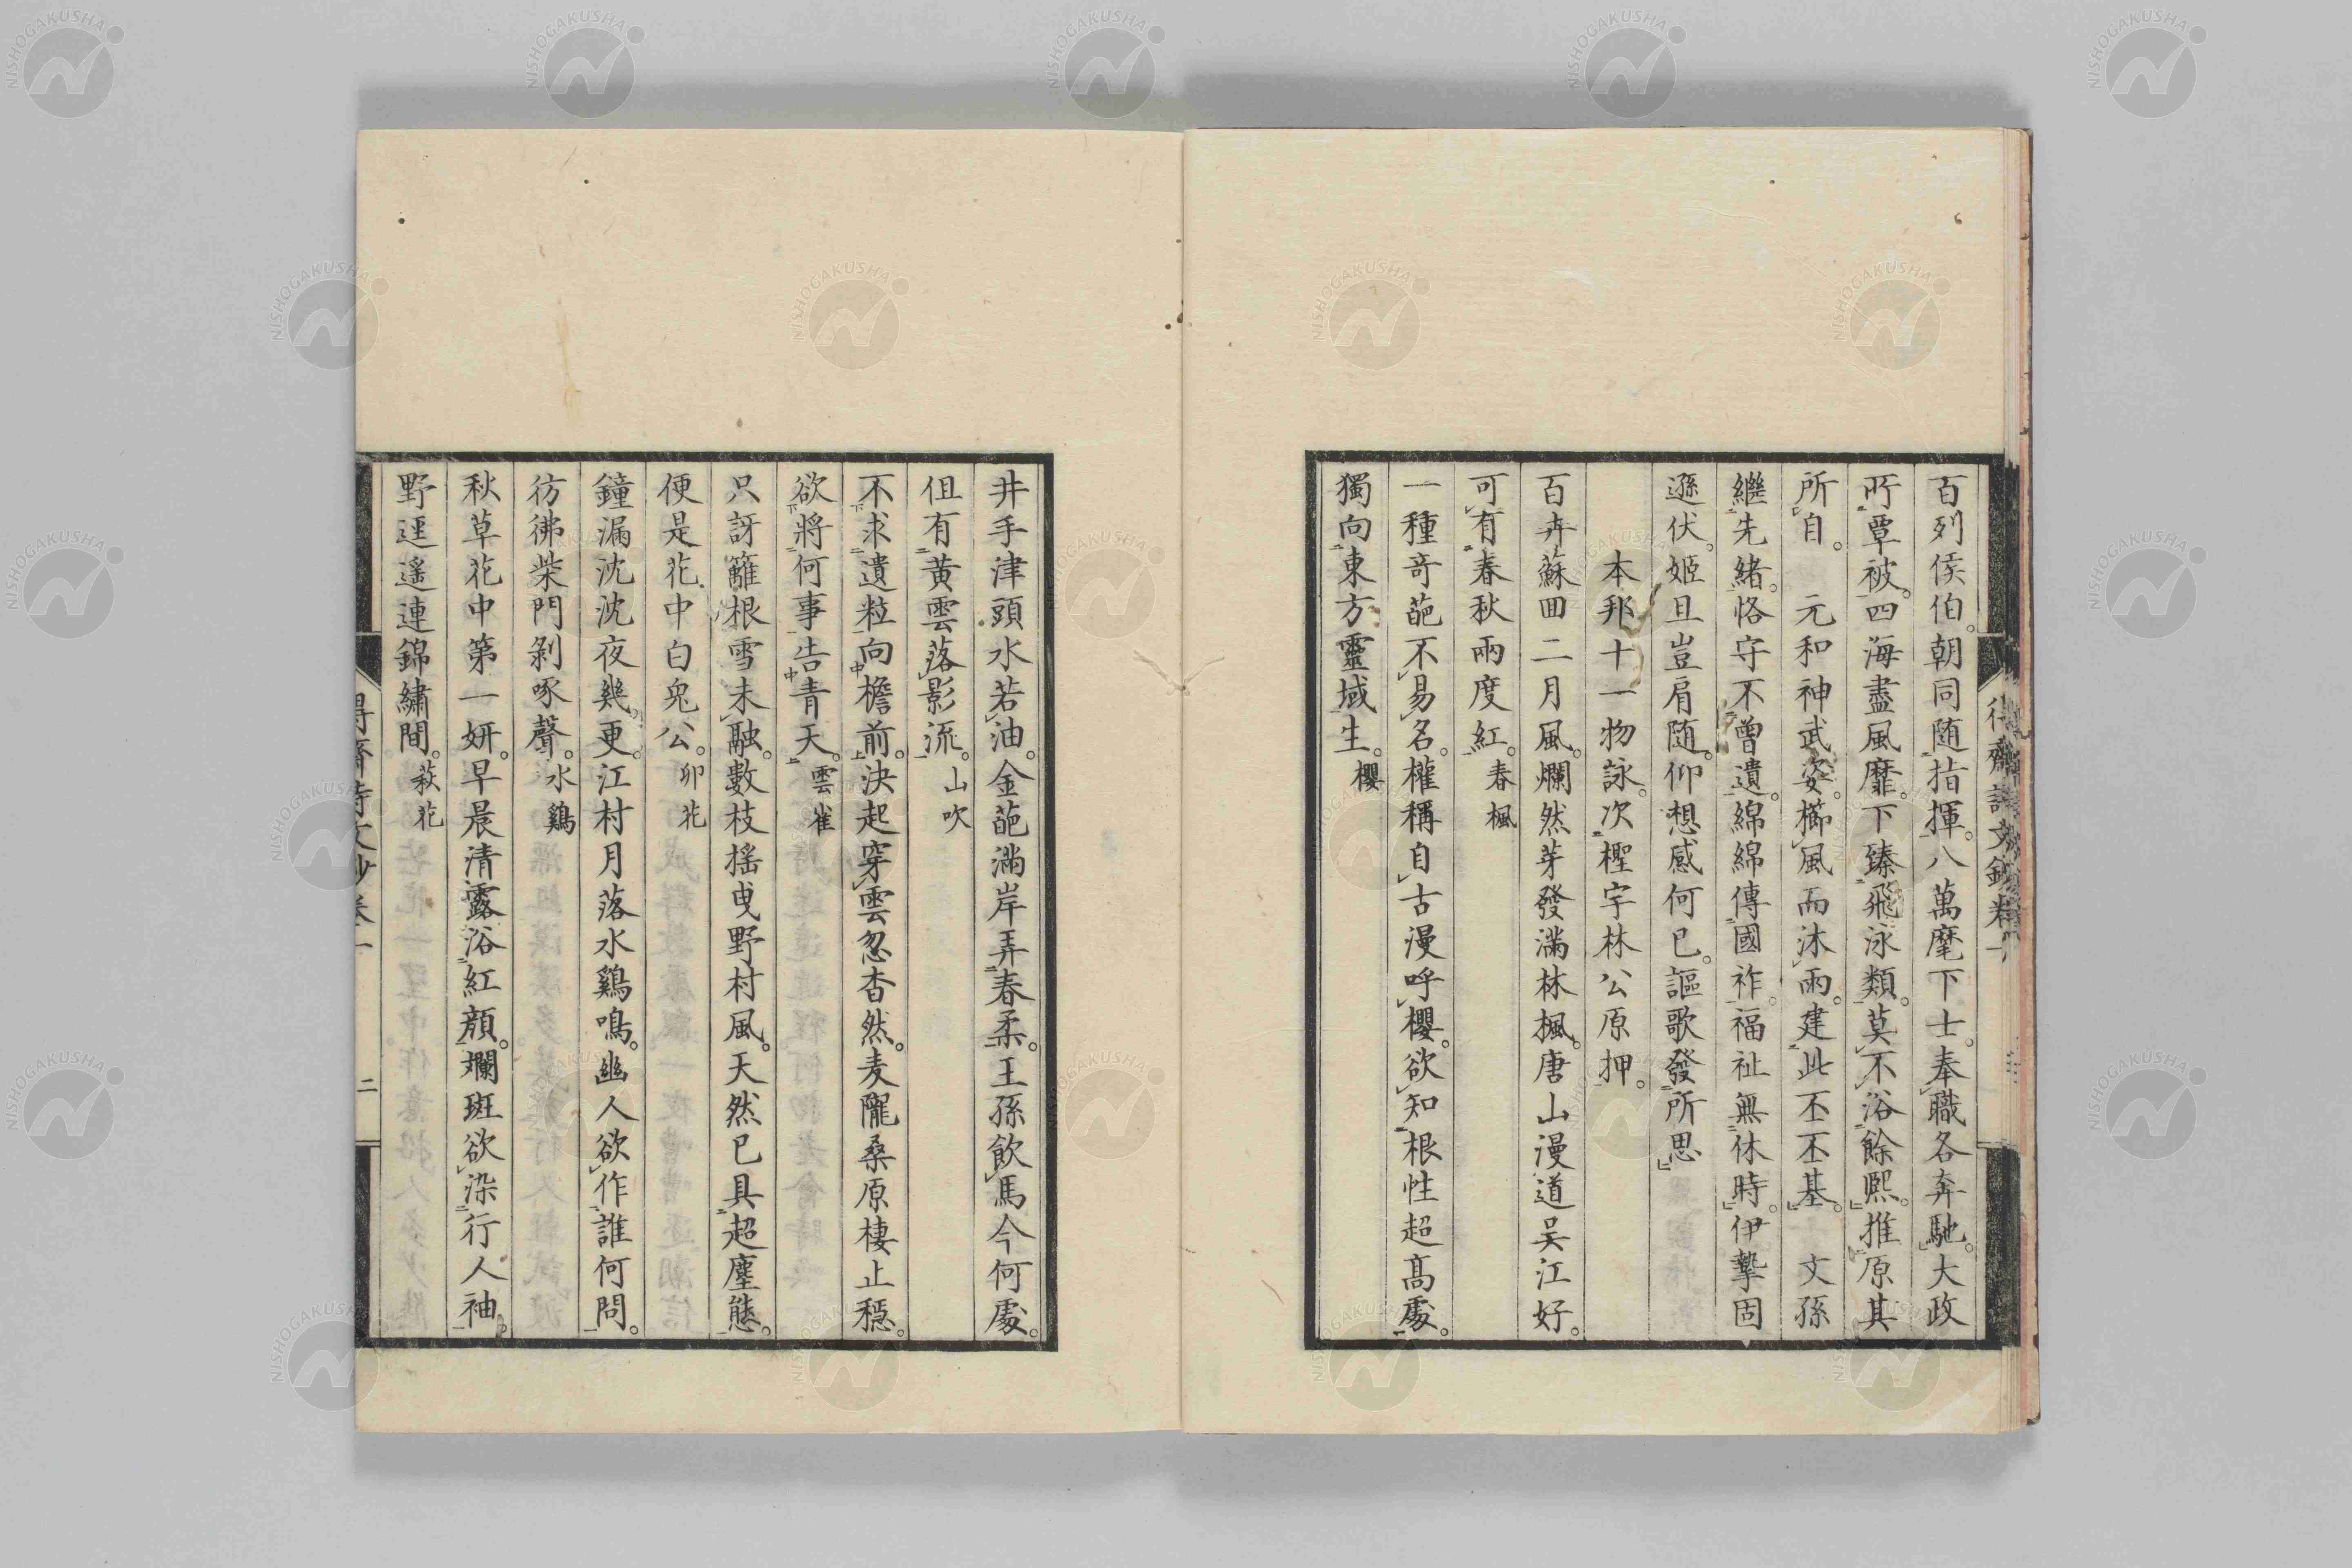 百列侯伯。朝同随指揮。八萬麾下士。奉職各奔馳。大政
所覃被。四海盡風靡。下臻飛泳類。莫不浴餘熙。推原其
所自。 元和神武姿。櫛風而沐雨。建此丕丕基。 文孫
繼先緒。恪守不曾遺。綿綿傳國祚。福祉無休時。伊摯固
遜伏。姬旦豈肩随。仰想感何已。謳歌發所思
本邦十一物詠。次檉宇林公原押。
百卉蘇回二月風。爛然芽發滿林楓。唐山漫道吴江好。
可有春秋兩度紅。春楓
一種奇葩不易名。權稱自古漫呼櫻。欲知根性超髙處。
獨向東方靈域生。櫻
井手津頭水若油。金葩滿岸弄春柔。王孫飲馬今何處。
但有黄雲落影流。山吹
不求遺粒向檐前。決起穿雲忽杳然。麦隴桑原棲止穏。
欲將何事告青天。雲雀
只訝籬根雪未融。數枝揺曳野村風。天然已具超塵態。
便是花中白兒公。卯花
鐘漏沈沈夜幾更。江村月落水鷄鳴。幽人欲作誰何問。
彷彿柴門剝啄聲。水鷄
秋草花中第一妍。早晨清露浴紅顔。斕斑欲染行人袖。
野逕遥連錦繡間。萩花
二
NISHOGAKUSHA